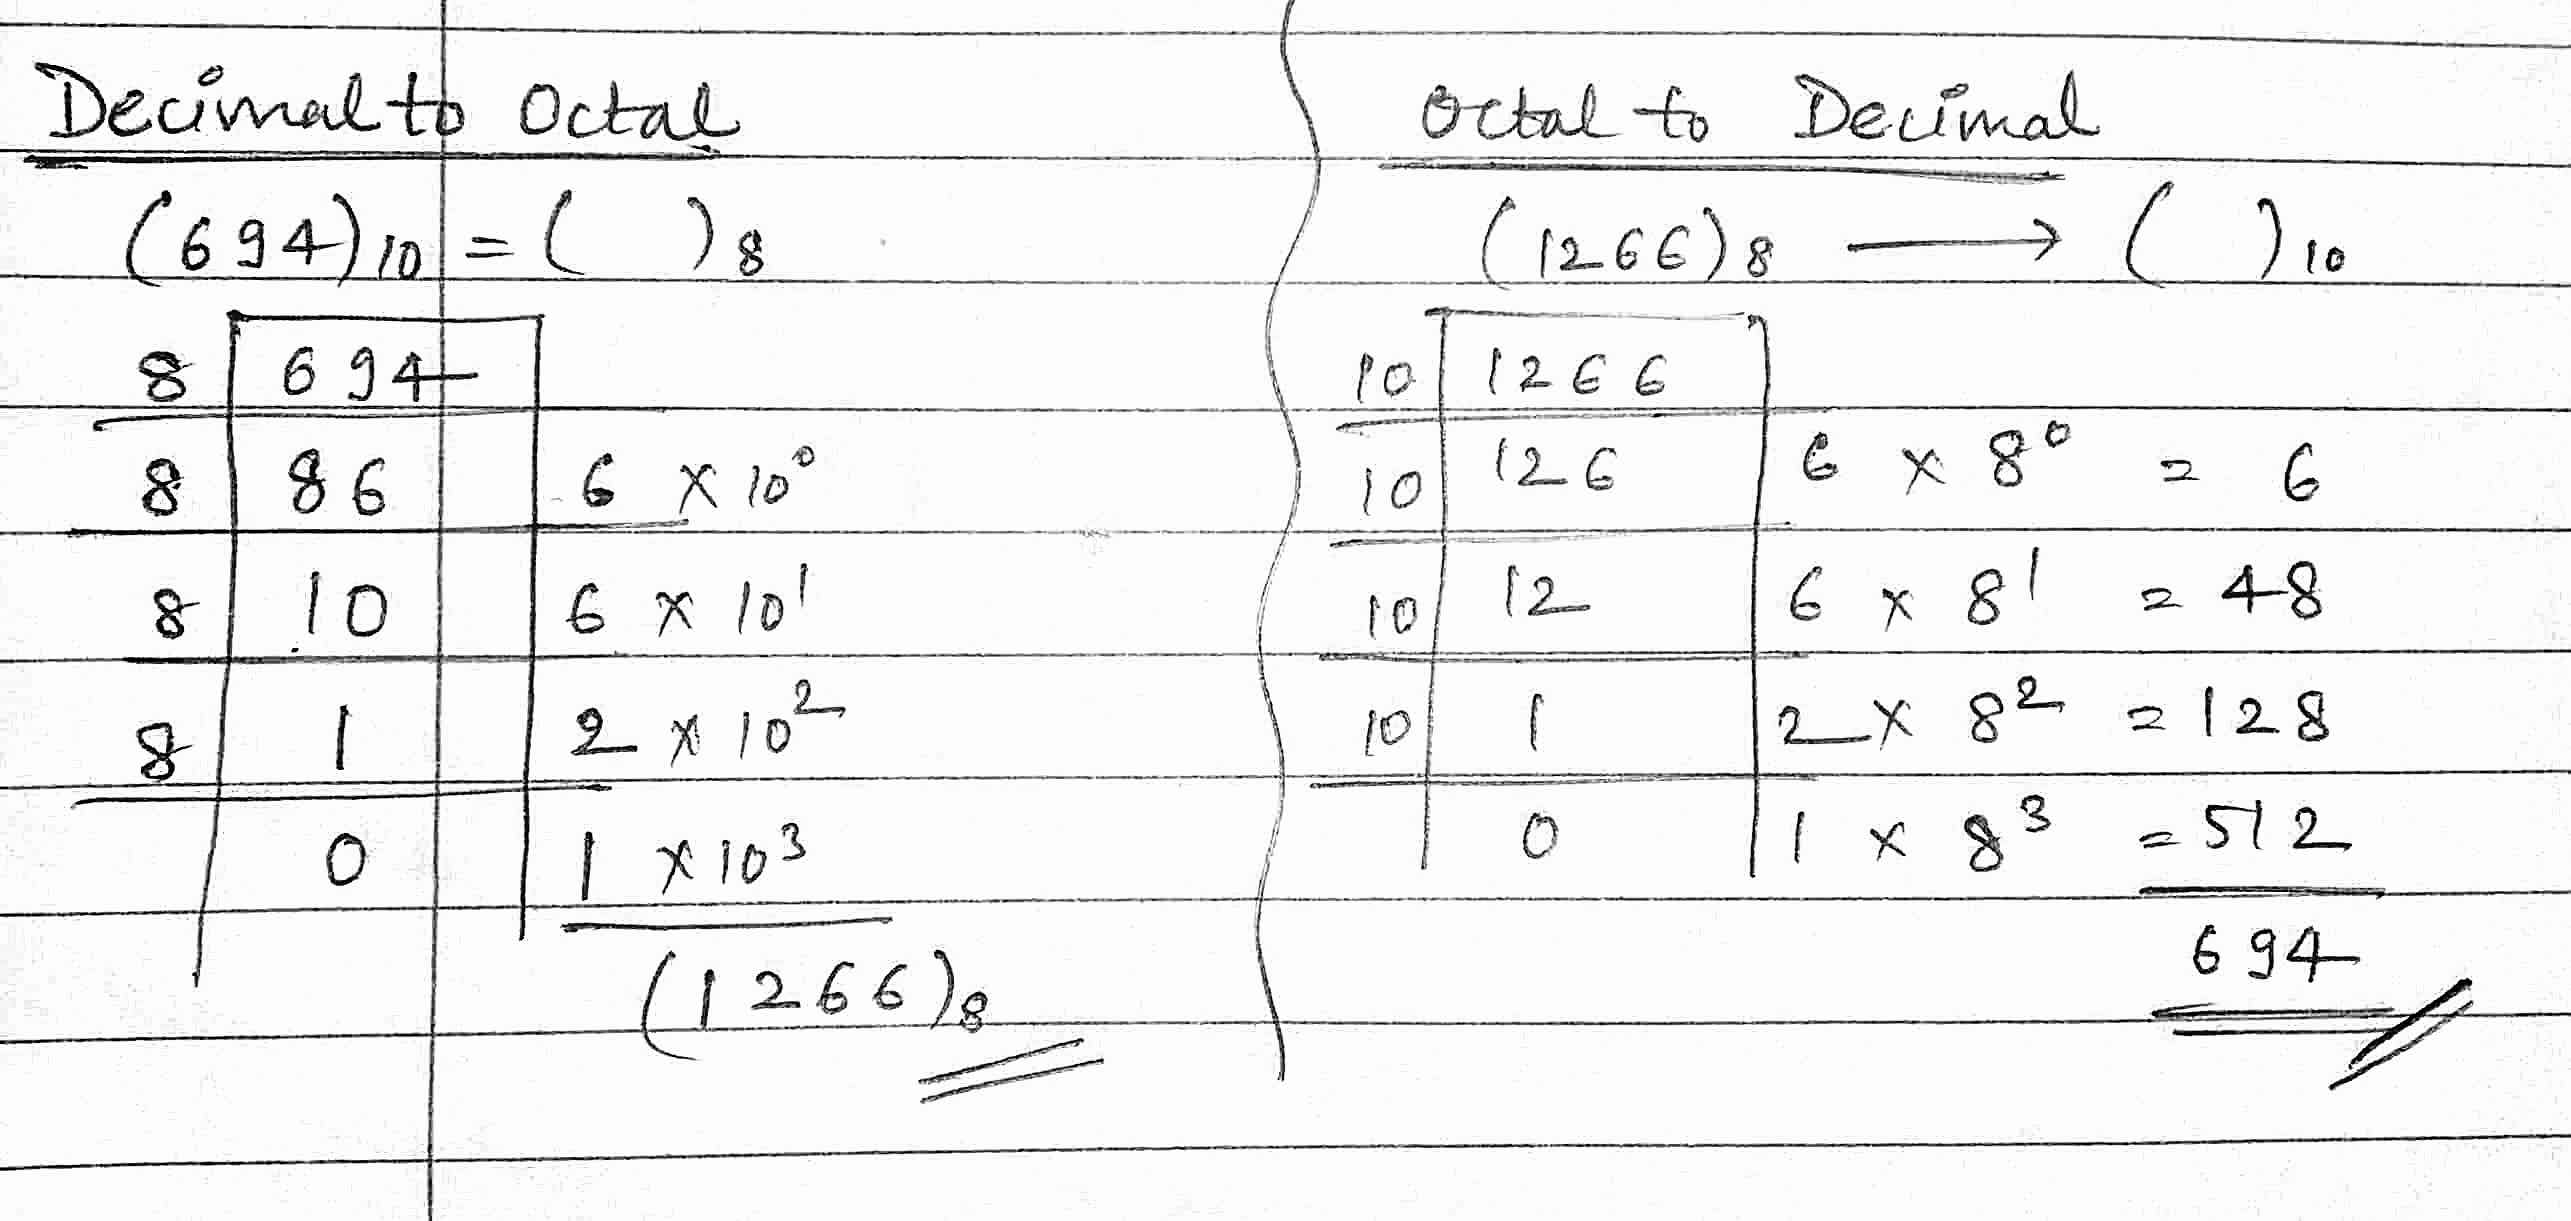 Decimal to Octal
(694)10 = ( )8
8 694
8 86 6 × 10⁰
8 10 6 × 10¹
8 1 2 × 10²
0 1 × 10³
(1266)8
Octal to Decimal
(1266)8 → ( )10
10 1266
10 126 6 × 8⁰ = 6
10 12 6 × 8¹ = 48
10 1 2 × 8² = 128
0 1 × 8³ = 512
694